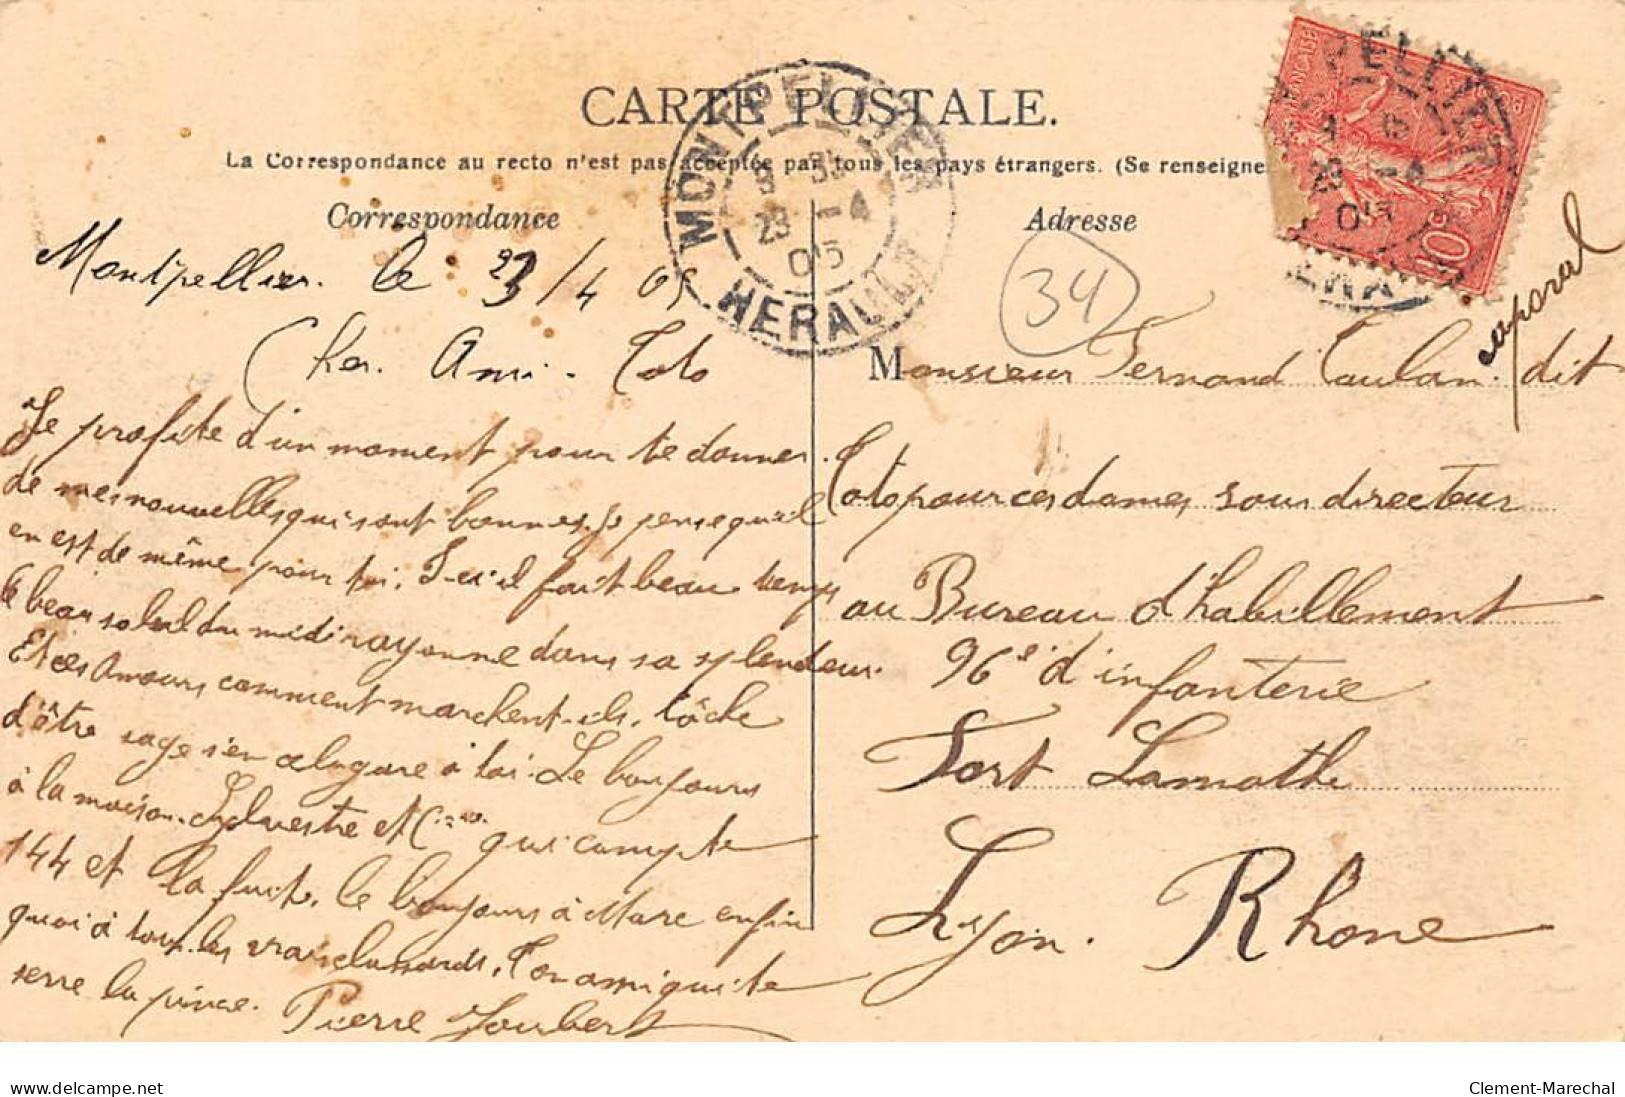 CARTE POSTALE.
La Correspondance au recto n'est pas acceptée par tous les pays étrangers. (Se renseigne
Correspondance
Montpellier. le 23/4 05
Cher. Ami. Toto
Je profite d'un moment pour te donner.
de mes nouvelles qui sont bonnes. Je pense qu'il
en est de même pour toi. Ici il fait beau temps
le beau soleil du midi rayonne dans sa splendeur.
Et ces Amours comment marchent-ils. tâche
d'être sage s'en al gare à toi. Le bonjours
à la maison. Sylvestre et Cie qui compte
144 et la fuit. le bonjours à Mare enfin
quoi à tous les vrais clussards. Ton ami qui te
serre la pince. Pierre Joubert
MONTPELLIER
23 -4
05
HERAULT
Adresse
34
Monsieur Fernand Caulan. caporal dit
Toto pour ces dames sous directeur
au Bureau d'habillement
96e d'infanterie
Fort Lamothe
Lyon. Rhone
10
23 -4
05
delcampe.net
Clement-Marechal